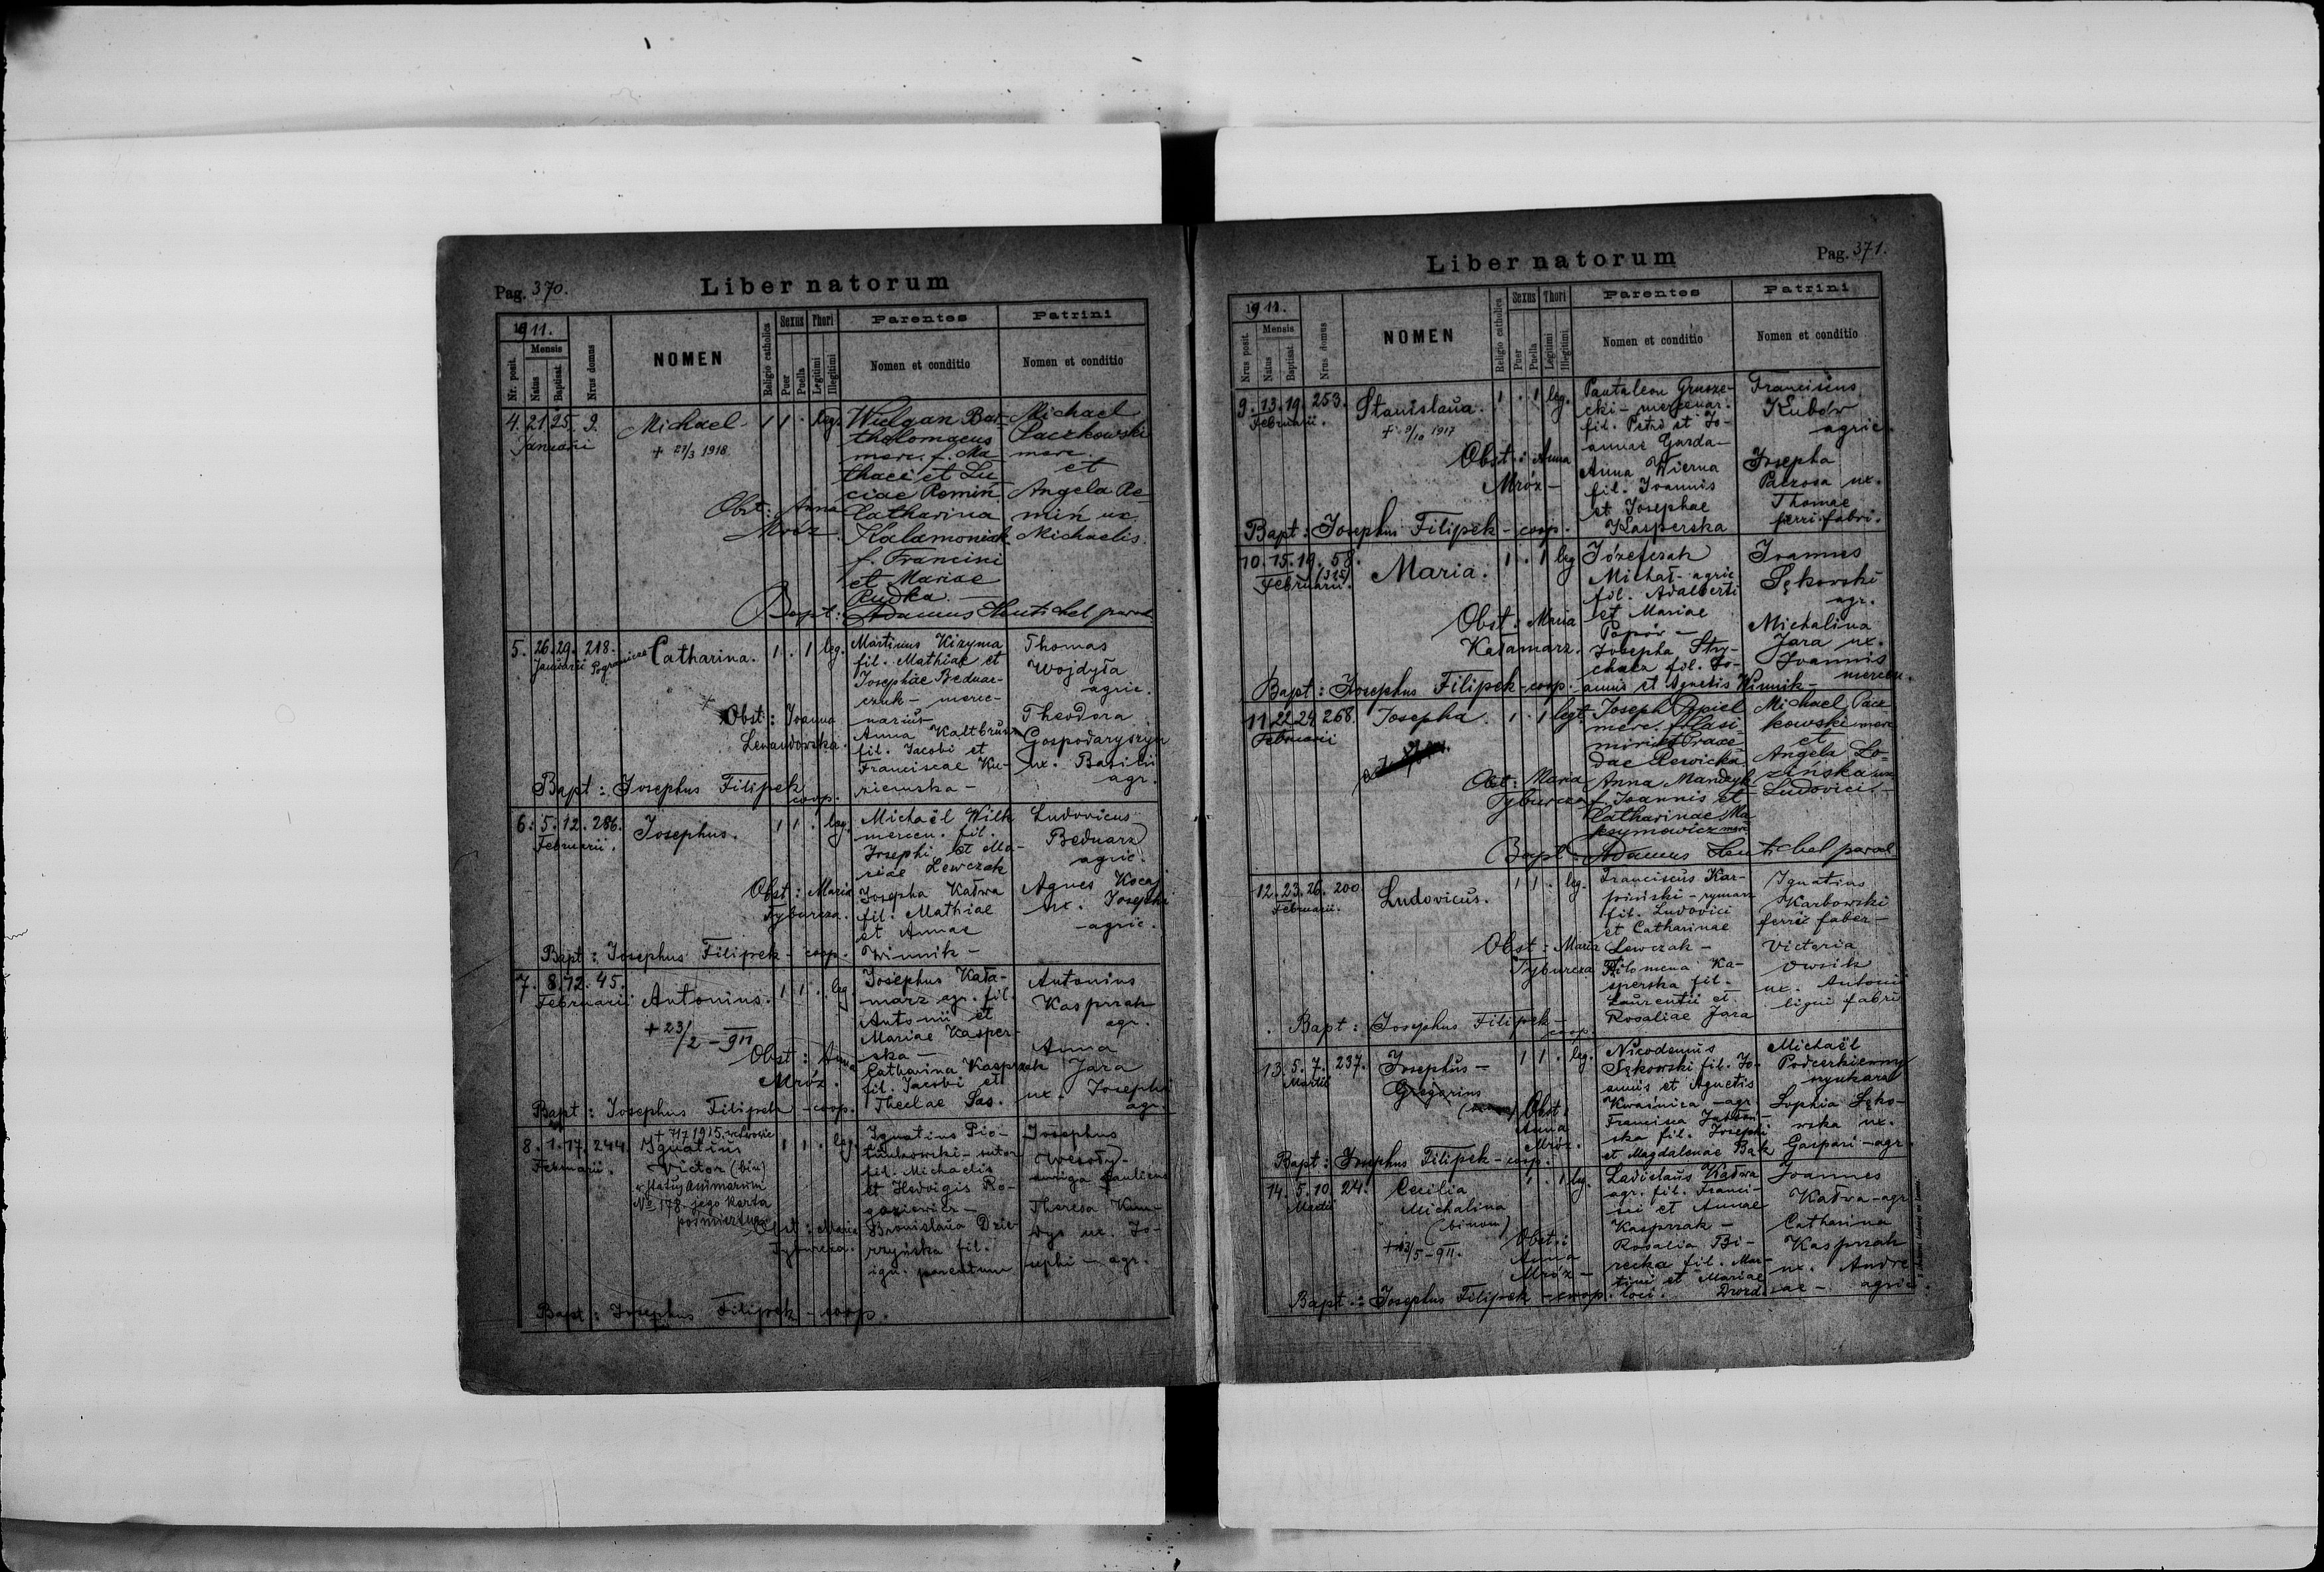 Pag. 370.
Liber natorum
1911.
Nr. posit.
Mensis
Natus
Baptisat.
Nrus domus
NOMEN
Religio catholica
Sexus
Puer
Puella
Thori
Legitimi
Illegitimi
Parentes
Nomen et conditio
Patrini
Nomen et conditio
4. 21. 25. 9.
Januarii
Michael
+ 21/3 1918
1 1 . leg.
Obst: Anna
Mróz.
Wulgan Bar-
tholomaeus
merc. f. Ma
thaei et Lu-
ciae Remiń.
Catharina
Kalamoniak
f. Francisci
et Mariae
Rudka. —
Michael
Paczkowski
merc.
et
Angela Re-
miń ux.
Michaelis.
Bapt: Adamus paroch.
5. 26. 29. 218.
Januarii
Catharina.
1 . 1 leg.
Obst: Joanna
Lewandowska.
Martinus Kizyma
fil. Mathiae et
Josephae Bednar-
czuk - merce-
narius
Anna
fil. Jacobi et
Franciscae Ku-
ziemska -
Thomas
Wojdyła
agric.
Theodora
Gospodaryszyn
ux. Basilii
agr.
Bapt: Josephus Filipek
coop.
6. 5. 12. 286.
Februarii.
Josephus.
1 1 . leg.
Obst: Maria
Tyburcza.
Michaël Wilk
mercen. fil.
Josephi et Ma-
riae Lewczak
Josepha Kadwa
fil. Mathiae
et Annae
Winnik -
Ludovicus
Bednarz
agric.
Agnes Kocaj
ux. Josephi
- agric.
Bapt: Josephus Filipek - coop.
7. 8. 12. 45.
Februarii
Antonius.
+ 23/2 - 911
1 1 . leg
Obst: Anna
Mróz.
Josephus Kała-
marz agr. fil.
Antonii et
Mariae Kasper-
ska -
Catharina Kasprzak
fil. Jacobi et
Theclae Sas.
Antonius
Kasprzak
agr.
Anna
Jara
ux. Josephi
agr.
Bapt: Josephus Filipek - coop.
8. 1. 17. 244.
Februarii.
+ 7/7 1915. we Lwowie
Ignatius
Victor (bin)
w status animarum
No 178 jego karta
pośmiertna
1 1 . leg.
Obst: Maria
Tyburcza.
Ignatius Pio-
trnkowski - sutor
fil. Michaelis
et Hedvigis Ro-
goziewicz -
Bronislaŭa Dzie-
rzyńska fil.
ign. parentum
Josephus
Wesoły-
auriga
Theresa
ux. Jo-
sephi - agr.
Bapt: Josephus Filipek - coop.
Liber natorum
Pag. 371.
1911.
Nrus posit.
Mensis
Natus
Baptisat.
Nrus domus
NOMEN
Religio catholica
Sexus
Puer
Puella
Thori
Legitimi
Illegitimi
Parentes
Nomen et conditio
Patrini
Nomen et conditio
9. 13. 19. 253.
Februarii.
Stanislaŭa.
+ 9/10 1917
1 . 1 leg.
Obst: Anna
Mróz -
Pantaleon Grusze-
cki - mercenar.
fil. Petri et Jo-
annae Garda-
Anna Wierna
fil. Joannis
et Josephae
Kasperska
Franciscus
Kubów
agric.
Josepha
ux.
Thomae
ferri fabri.
Bapt: Josephus Filipek - coop.
10. 15. 19. 58.
Februarii.
Maria.
1 . 1 leg
Obst: Maria
Kałamarz.
Józefczak
Michał - agric
fil. Adalberti
et Mariae
Popów -
Josepha Stry-
charz fil. Jo-
annis et Agnetis Winnik -
Joannes
Sękowski
agr.
Michalina
Jara ux.
Joannis
mercen.
Bapt: Josephus Filipek - coop.
11. 22. 24. 268.
Februarii
Josepha.
1 . 1 legt.
Obst: Maria
Tyburcza
Joseph Popiel
merc. f. Casi-
miri et Praxe-
dae Rewicka
Anna Mandzyk
f. Joannis et
Catharinae Ma-
ksymowicz merc
Michael Pacz-
kowski merc
et
Angela Lo-
zińska ux
Ludovici -
Bapt: Adamus paroch
12. 23. 26. 200.
Februarii.
Ludovicŭs.
1 1 . leg.
Obst: Maria
Tyburcza
Franciscŭs Kar-
piński - rymarz
fil. Ludovici
et Catharinae
Lewczak -
Filomena Ka-
sperska fil.
Laŭrentii et
Rosaliae Jara
Ignatius
Karbowski
ferri faber -
Victoria
Owsik
ux. Antonii
ligni fabri
Bapt: Josephus Filipek -
coop.
13. 5. 7. 237.
Martii
Josephŭs -
Gregorius
1 1 . leg.
Obst:
Anna
Mróz.
Nicodemus
Sękowski fil. Jo-
annis et Agnetis
Kwaśnica - agr.
Francisca
ska fil. Josephi
et Magdalenae Bąk
Michaël
Podcerkienny
Sophia Sęko-
wska ux.
Gaspari - agr.
Bapt: Josephus Filipek - coop.
14. 5. 10. 24.
Martii
Cecilia
Michalina
(binom)
+ 13/5 - 911.
1 . 1 leg.
Obst:
Anna
Mróz -
Ladislaŭs Kadwa
agr. fil. Franci-
sci et Annae
Kasprzak -
Rosalia Bi-
recka fil. Mar-
tini et Mariae
Drozd
Joannes
Kadwa - agr.
Catharina
Kasprzak
ux. Andre-
ae - agric.
Bapt: Josephus Filipek - coop. loci.